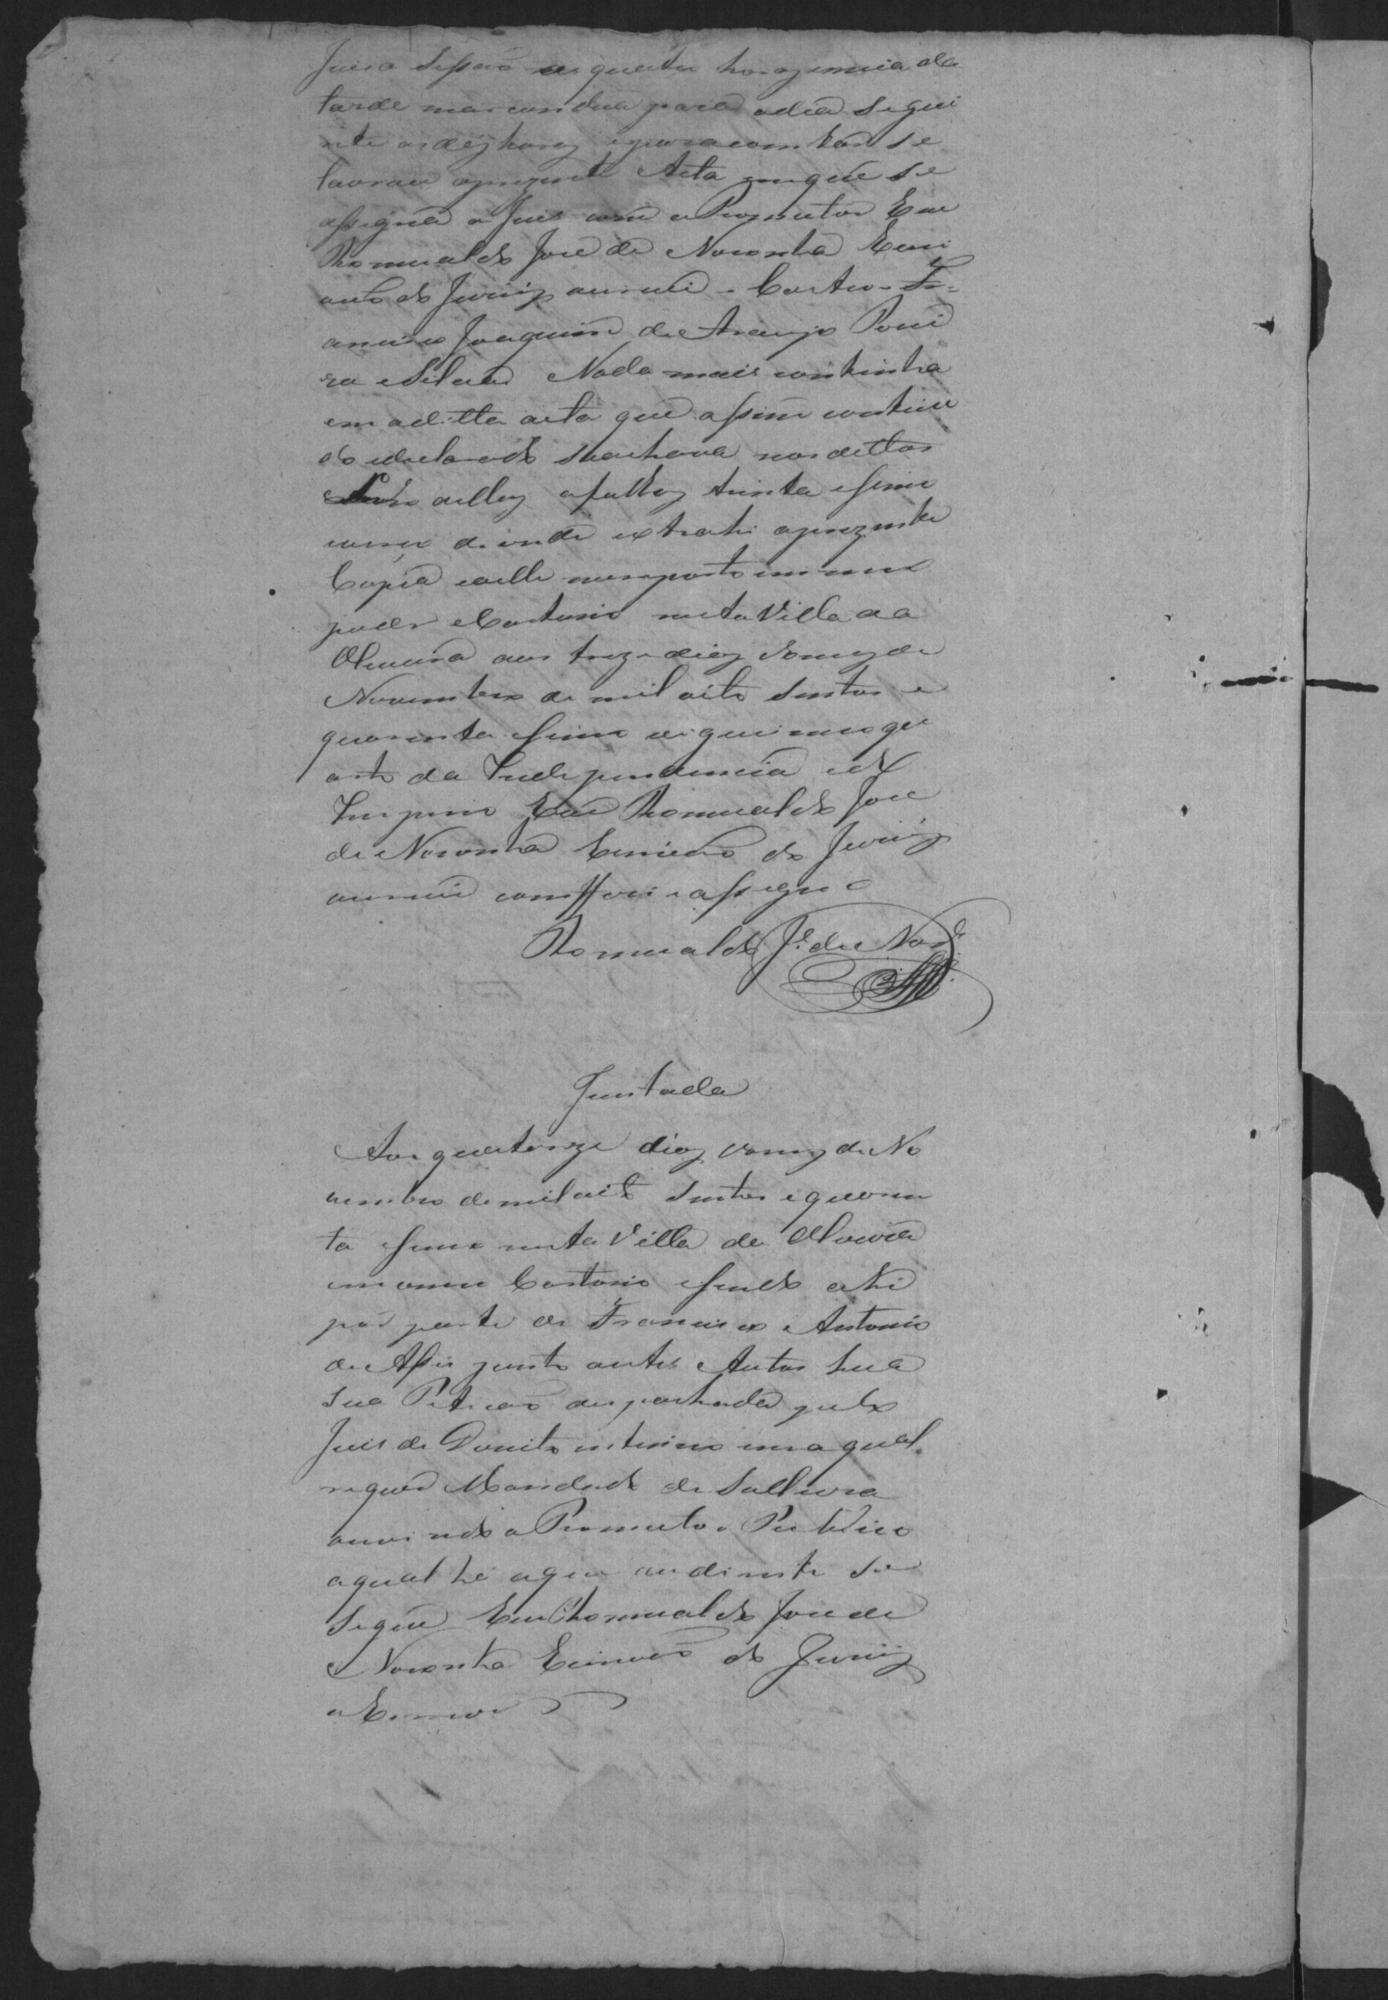 Juis a Sessaõ as quatro horas emeia da
tarde marcando a para odia Segui
nte as dez horas epara constar se
lavrou aprezente Acta em que se
assigna o Juis com o Promotor Eu
Romualdo Jose de Noronha Escri
vaõ do Jurij escrevi = Castro = Fr=
ancisco Joaquim de Araujo Perei
ra eSilva Nada mais continha
em aditta acta que assim contiu
do edeclarado Seachava nos dittos
delles afolhas trinta e sinco
verço deonde extrahi aprezente
Copia eaella mereporto em meu
poder eCartorio nesta Villa da
Oliveira aos treze dias domes de
Novembro de mil oito Sentos e
quarenta esinco vigecimo qu
arto da Independencia edo
Imperio Eu Romualdo Jose
de Noronha Escrivaõ do Jurij
escrevi conferi e assigno
Romualdo Je. de Nora.
Juntada
Aos quatorze dias domes de No
vembro demil oito Sentos e quaren
ta esinco nesta Villa de Oliveira
em meu Cartorio esendo ahi
por parte de Francisco e Antonio
de Assis junto aestes Autos hua
Sua Petiçaõ despachada pelo
Juis de Direito interino em a qual
requer Mandado de Soltura
ouvindo o Promotor Publico
aqual hé aque aodiante Se
Segue Eu Romualdo Jose de
Noronha Escrivaõ do Jurij
o Escrevi